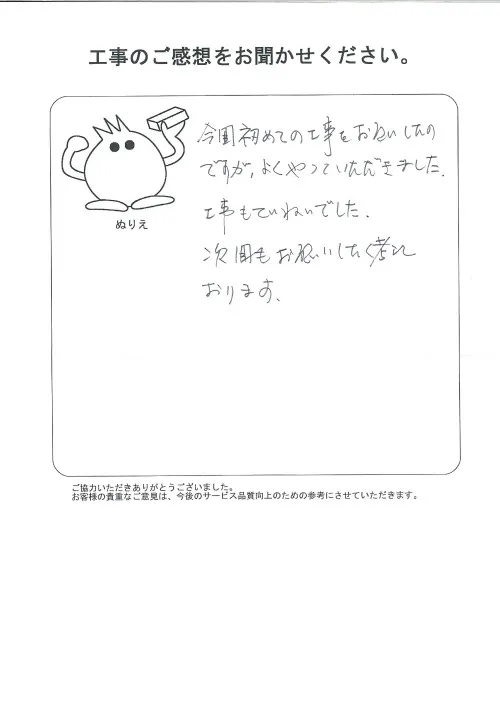 工事のご感想をお聞かせください。
今回初めての工事をお願いしたの
ですが、よくやっていただきました。
工事もていねいでした。
次回もお願いしたく考えて
おります。
ぬりえ
ご協力いただきありがとうございました。
お客様の貴重なご意見は、今後のサービス品質向上のための参考にさせていただきます。